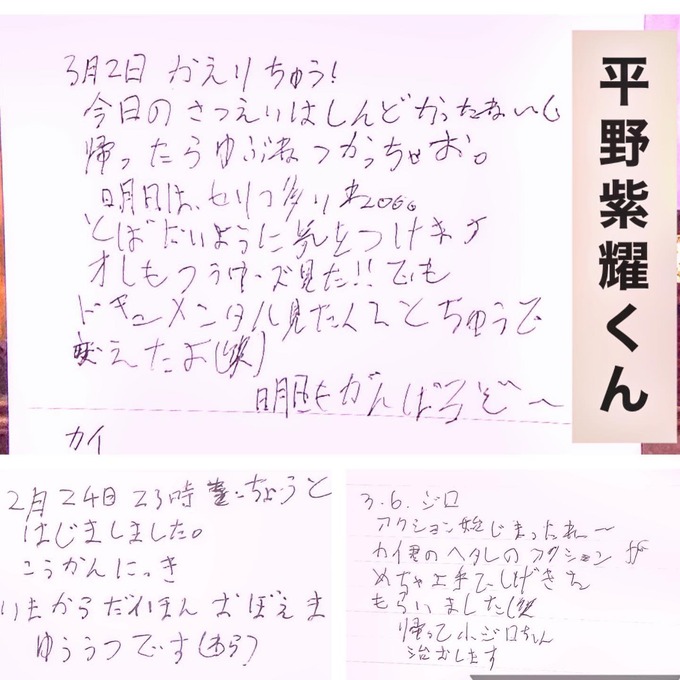 3月2日 かえりちゅう!
今日のさつえいはしんどかったねい
帰ったらゆぶねつかっちゃお。
明日は、セリフ多い
とばないように気をつけます
オレもつうウーズ見た!! でも
ドキュメンタル見たくてとちゅうで
変えたよ(笑)
明日もがんばるぞ〜
カイ
平野紫耀くん
2月24日 23時 ちょうど
はじましました。
こうかんにっき
いまからだいほんおぼえま
ゆううつです(わら)
3.6. ジロ
アクション始じまったねー
カイ君のヘタレのアクションが
めちゃ上手でしげきを
もらいました(笑
帰って小ジロちゃん
治おします